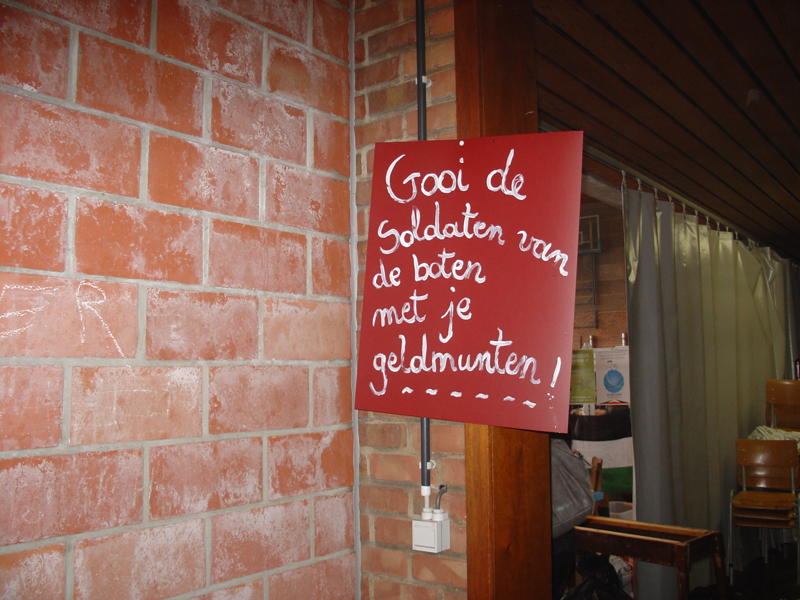 Gooi de
Soldaten van
de boten
met je
geldmunten!
R